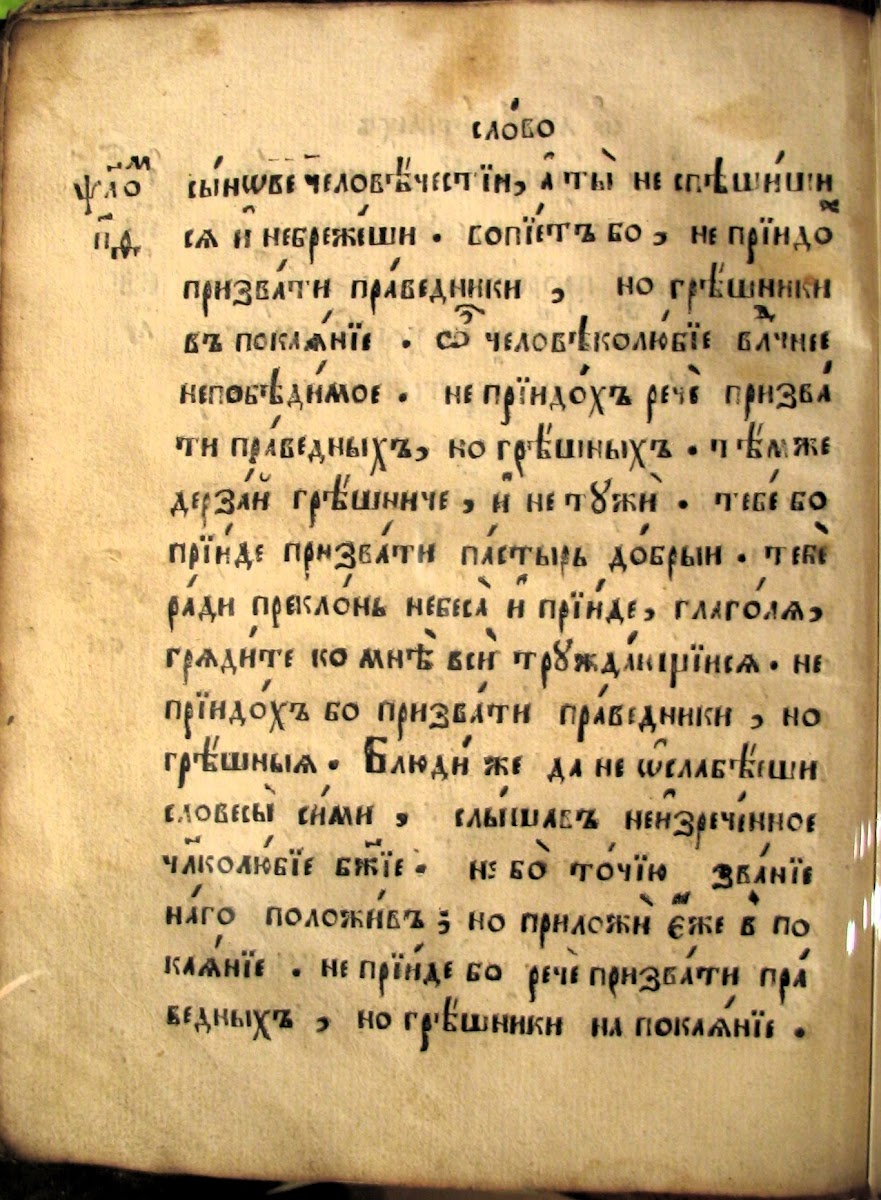 сло́во
ѱло́м сы́нѡве человѣ́честїи, а҆ ты̀ не спѣши́ши
п҃д сѧ и҆ небреже́ши . вопїе́тъ бо , не прїидо́х
призва́ти пра́ведники , но грѣ́шники
въ покаѧ́нїе . ѽ человѣколю́бїе влⷣчнее
непобѣди́мое . не прїидо́хъ речѐ призва́
ти пра́ведныхъ, но грѣ́шныхъ . тѣ́мже
дерза́й грѣ́шниче , и҆ не тꙋжѝ . тебе́ бо
прїи́де призва́ти па́стырь до́брыи . тебѐ
ра́ди преклонь небеса̀ и҆ прїи́де , глаго́лѧ ,
грѧди́те ко мнѣ̀ всѝ трꙋжда́ющїисѧ . не
прїидо́хъ бо призва́ти пра́ведники , но
грѣ́шныѧ . Блюди́ же да не ѡ҆слабѣ́еши
словесы̀ си́ми , слы́шавъ неи҆зрече́нное
чл҃колю́бїе бж҃їе . не бо̀ то́чїю зва́нїе
на́го положи́въ ; но приложѝ є҆́же в̾ по
каѧ́нїе . не прїи́де бо речѐ призва́ти пра́
ведныхъ , но грѣ́шники на покаѧ́нїе .